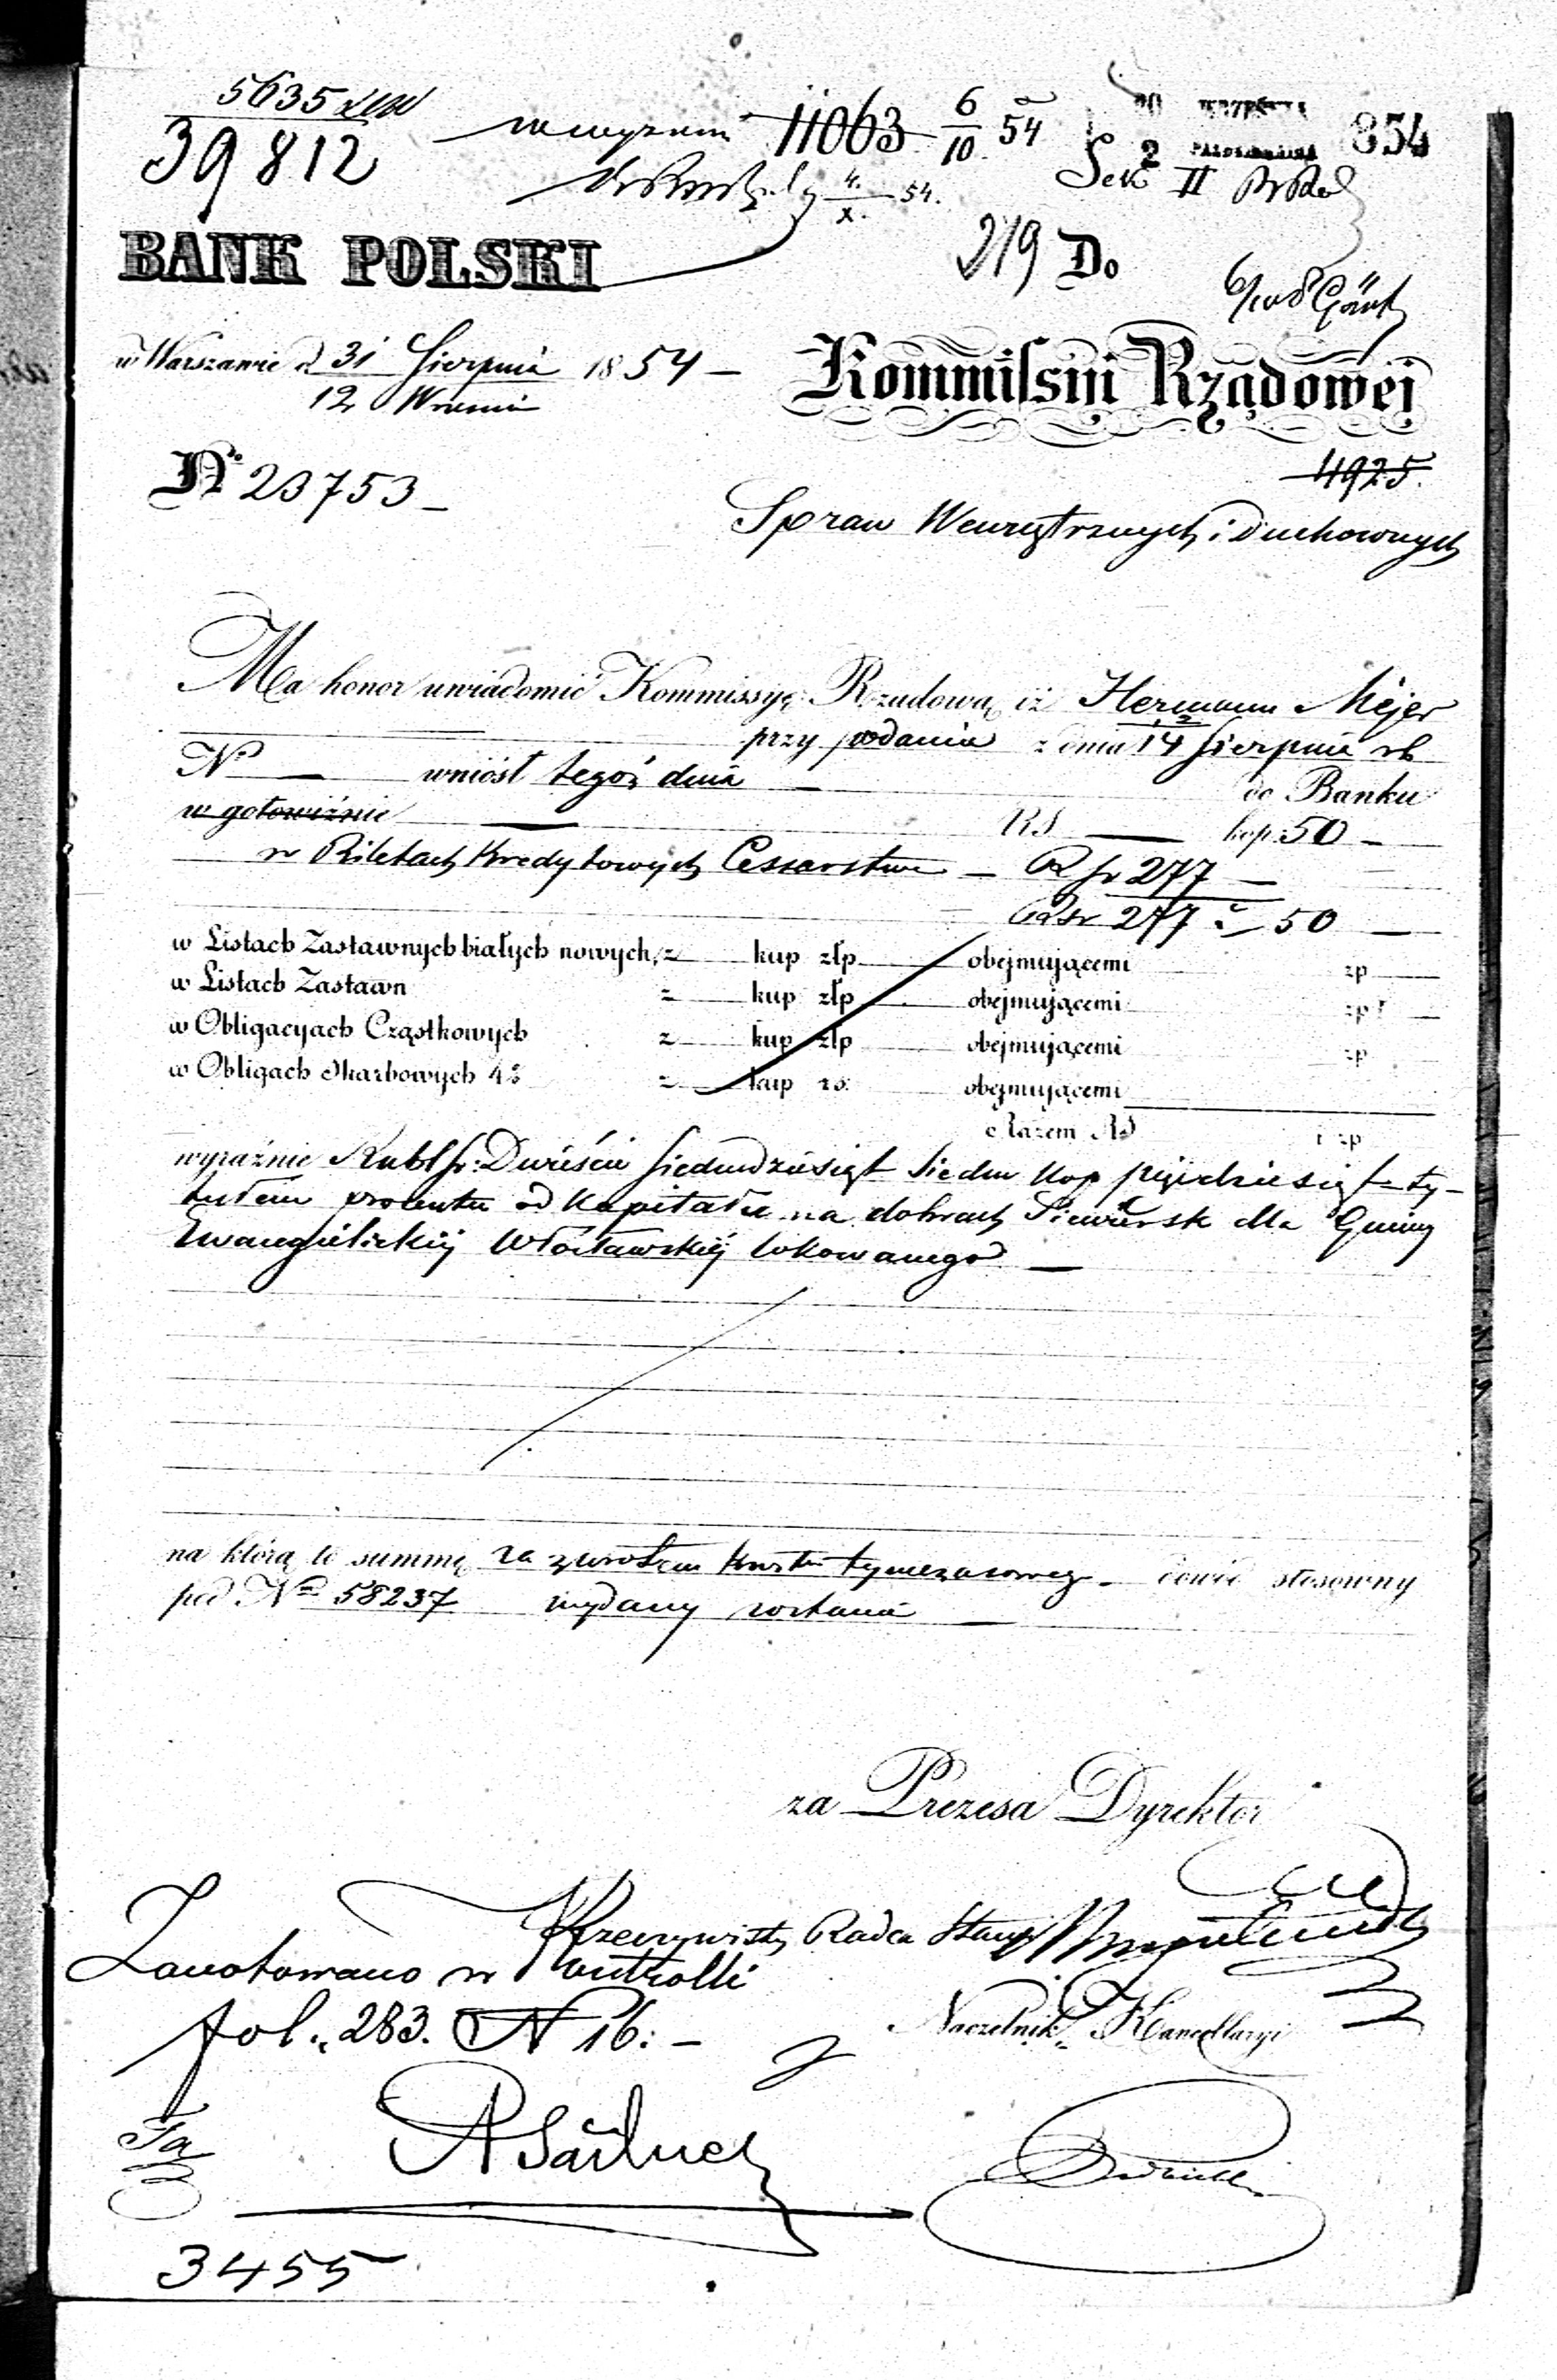 5635
39812
11063 6/10 54
4./X. 54.
30 WRZEŚNIA 854
2 PAŹDZIERNIKA
Sek II
BANK POLSKI
219 Do
w Warszawie d 31 Sierpnia 1854 —
12 Wrześni
Kommissyi Rządowej
4925.
No 23753 —
Spraw Wewnętrznych i Duchownych
Ma honor uwiadomić Kommissyę Rządową iż Hermann Mejer
przy podaniu z dnia 2/14 Sierpnia rb
No — wniósł tegoż dnia — do Banku
w gotowiźnie — RS — kop: 50 —
w Biletach Kredytowych Cesarstwa — R sr 277 —
Rsr 277 k 50 —
w Listach Zastawnych białych nowych, z kup złp obejmującemi zp
w Listach Zastawn z kup złp obejmującemi zp
w Obligacyach Cząstkowych z kup złp obejmującemi zp
w Obligach Skarbowych 4% z kup rs: obejmującemi
Razem RS i zp
wyraźnie Rubl sr: Dwieście siedmdziesiąt siedm kop pięćdziesiąt ty-
tułem procentu od Kapitału na dobrach dla Gminy
Ewangielickiéj Włocławskiéj lokowanego —
na którą to summę za zwrotem kwitu tymczasowego — dowód stosowny
pod No 58237 wydany zostanie —
za Prezesa Dyrektor
Rzeczywisty Radca Stanu
Zanotowano w Kontrolli
fol. 283. N 16: —
Naczelnik Kancellaryi
3455